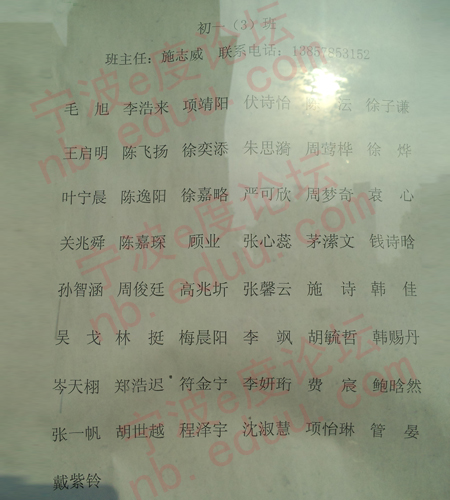 初一（3）班
班主任：施志威 联系电话：13857853152
毛 旭 李浩来 项靖阳 伏诗怡 沄 徐子谦
王启明 陈飞扬 徐奕添 朱思漪 周莺桦 徐 烨
叶宁晨 陈逸阳 徐嘉略 严可欣 周梦奇 袁 心
关兆舜 陈嘉琛 顾业 张心蕊 茅潆文 钱诗晗
孙智涵 周俊廷 高兆圻 张馨云 施 诗 韩 佳
吴 戈 林 挺 梅晨阳 李 飒 胡毓哲 韩赐丹
岑天栩 郑浩迟 符金宁 李妍珩 费 宸 鲍晗然
张一帆 胡世越 程泽宇 沈淑慧 项怡琳 管 晏
戴紫铃
宁波e度论坛
nb.eduu.com
宁波e度论坛
nb.eduu.com
宁波e度论坛
nb.eduu.com